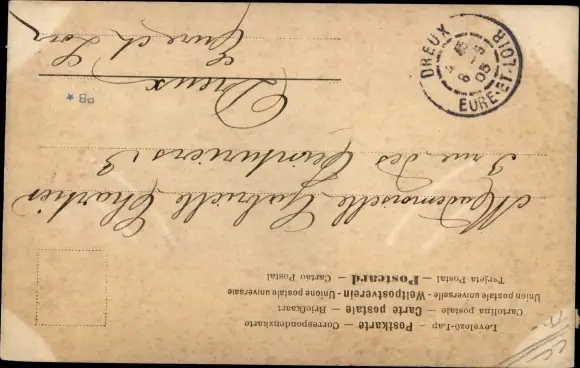 Levelező-Lap — Postkarte — Correspondenzkarte
Cartolina postale — Carte postale — Briefkaart
Union postale universelle - Weltpostverein - Unione postale universale
Tarjeta Postal — Postcard — Cartao Postal
Mademoiselle Gabrielle Chartier
3 rue des Teinturiers 3
Dreux
Eure et Loir
PB *
DREUX
EURE-ET-LOIR